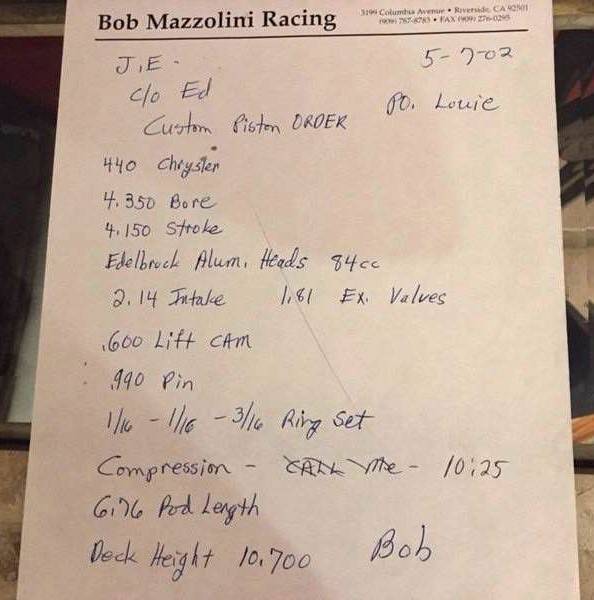 Bob Mazzolini Racing
3199 Columbia Avenue • Riverside, CA 92501
(909) 787-8783 • FAX (909) 276-0295
J.E - 5-7-02
c/o Ed P.O. Louie
Custom Piston ORDER
440 Chrysler
4.350 Bore
4.150 Stroke
Edelbrock Alum. Heads 84cc
2.14 Intake 1.81 Ex. Valves
.600 Lift CAM
.990 Pin
1/16 - 1/16 - 3/16 Ring Set
Compression - CALL Me - 10:25
6.76 Rod Length
Deck Height 10.700 Bob